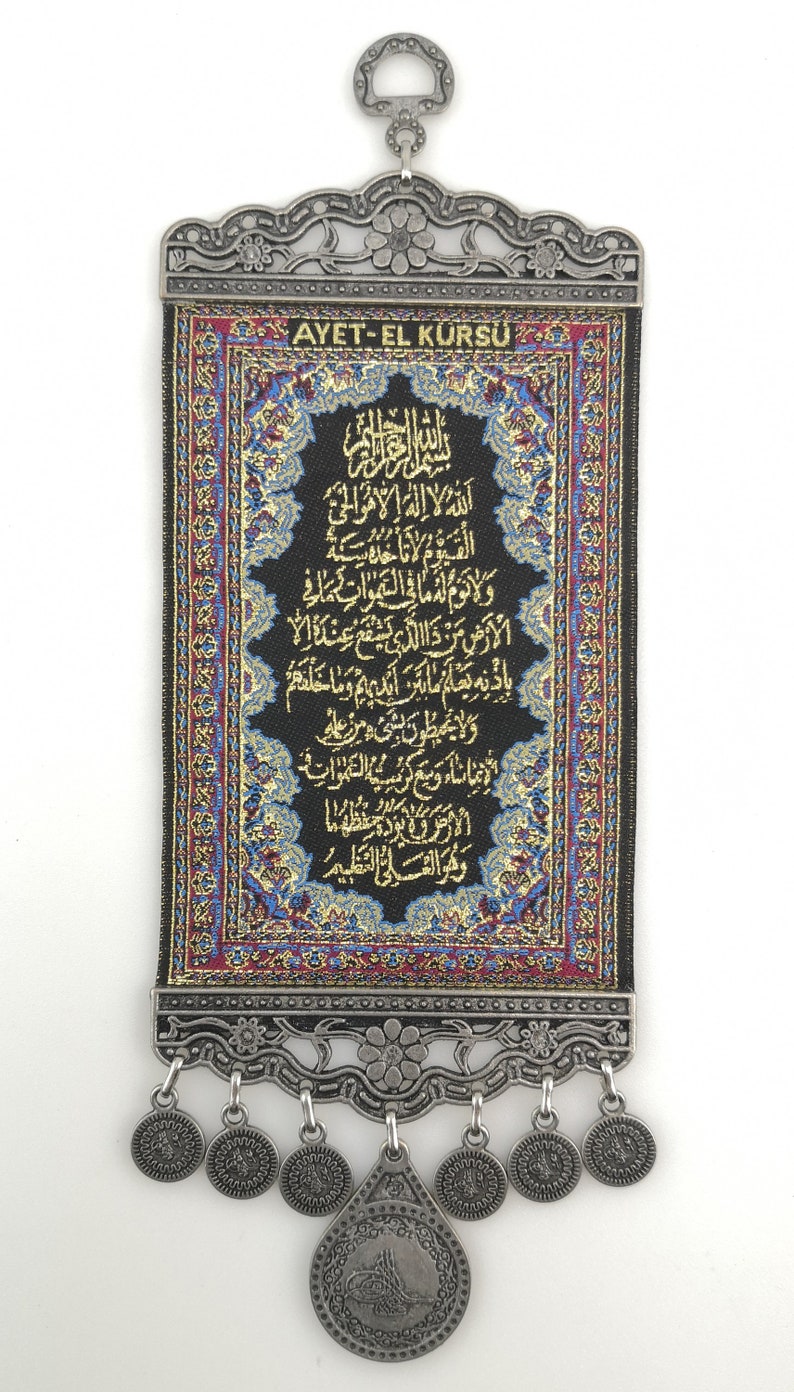 AYET-EL KÜRSÜ
بسم الله الرحمن الرحيم
اَللهُ لَا اِلٰهَ اِلَّا هُوَ الْحَيُّ
الْقَيُّومُ لَا تَأْخُذُهُ سِنَةٌ
وَلَا نَوْمٌ لَهُ مَا فِي السَّمٰوَاتِ وَمَا فِي
الْاَرْضِ مَنْ ذَا الَّذِي يَشْفَعُ عِنْدَهُ اِلَّا
بِاِذْنِهِ يَعْلَمُ مَا بَيْنَ اَيْدِيهِمْ وَمَا خَلْفَهُمْ
وَلَا يُحِيطُونَ بِشَيْءٍ مِنْ عِلْمِهِ
اِلَّا بِمَا شَاءَ وَسِعَ كُرْسِيُّهُ السَّمٰوَاتِ وَ
الْاَرْضَ وَلَا يَؤُدُهُ حِفْظُهُمَا
وَهُوَ الْعَلِيُّ الْعَظِيمُ